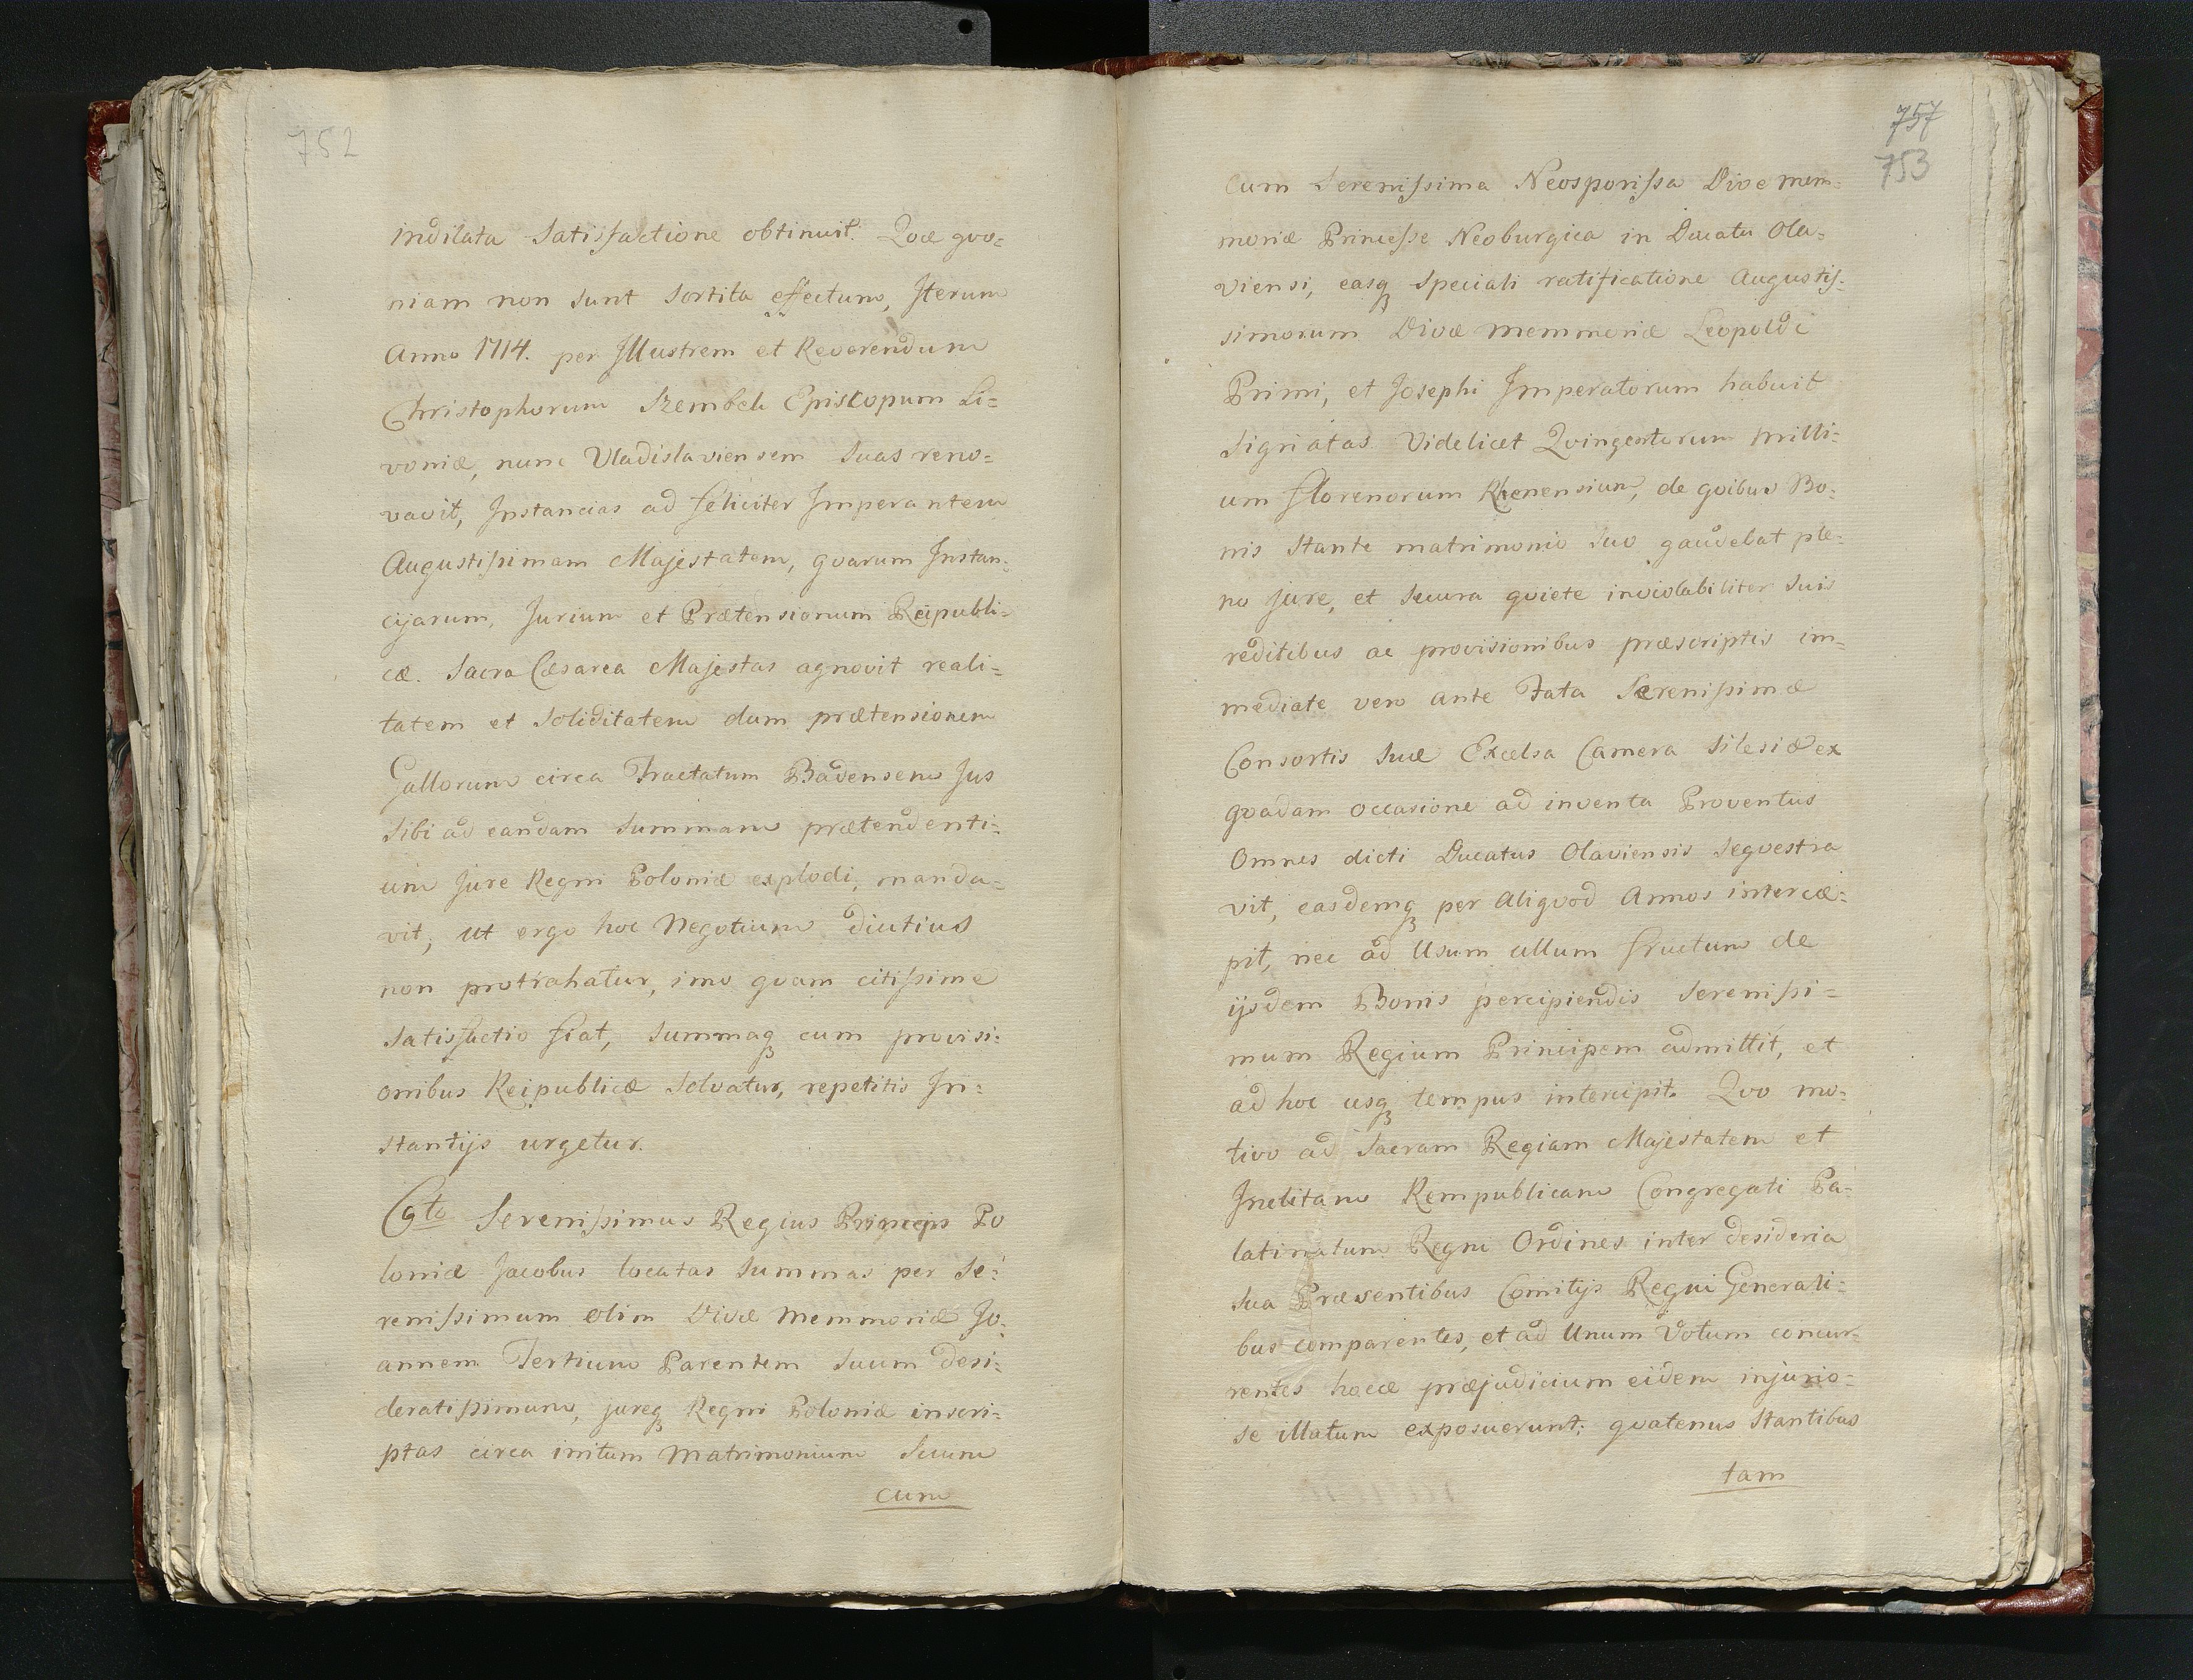 752
indilata Satisfactione obtinuit. Qvæ qvo=
niam non sunt Sortita effectum, Iterum
Anno 1714. per Illustrem et Reverendum
Christophorum Szembek Episcopum Li=
voniæ, nunc Vladislaviensem Suas reno=
vavit, Instancias ad feliciter Imperantem
Augustissimam Majestatem, qvarum Instan=
cijarum, Jurium et Prætensionum Reipubli=
cæ. Sacra Cæsarea Majestas agnovit reali=
tatem et Soliditatem dum prætensionem
Gallorum circa Tractatum Badensem Jus
Sibi ad eandam Summam prætendenti=
um Jure Regni Poloniæ explodi, manda=
vit, ut ergo hoc Negotium diutius
non protrahatur, imo qvam citissime
Satisfactio fiat, Summaq₃ cum provisi=
onibus Reipublicæ Solvatur, repetitis In=
stantijs urgetur.
6to Serenissimus Regius Princeps Po
loniæ Jacobus locatas Summas per Se=
renissimum olim Divæ Memmoriæ Jo=
annem Tertium Parentem Suum desi=
deratissimum, jureq₃ Regni Poloniæ inscri=
ptas circa initum Matrimonium Suum
cum
757
753
Cum Serenissima Neosporissa Dive mem=
moriæ Princesse Neoburgica in Ducatu Ola=
viensi, easq₃ Speciali ratificatione Augustis=
simorum Divæ memmeriæ Leopoldi
Primi, et Josephi Imperatorum habuit
Signatas Videlicet Qvingentorum milli=
um florenorum Rhenensium, de qvibus Bo=
nis Stante matrimonio Suo gaudebat ple=
no jure, et Secura qviete inviolabiliter Suis
reditibus ac provisionibus præscriptis im=
mediate vero ante Fata Serenissimæ
Consortis Suæ Excelsa Camera Silesiæ ex
qvadam occasione ad inventa Proventus
Omnes dicti Ducatus Olaviensis Seqvestra
vit, easdemq₃ per Aliqvod Annos intercæ=
pit, nec ad Usum ullum fructum de
ijsdem Bonis percipiendis Serenissi=
mum Regium Principem admittit, et
ad hoc usq₃ tempus intercipit. Qvo mo=
tivo ad Sacram Regiam Majestatem et
Inclitam Rempublicam Congregati Pa=
latinatum Regni Ordines inter desideria
Sua Præsentibus Comitijs Regni Generali=
bus comparentes, et ad Unum Votum concur=
rentes hocce præjudicium eidem injurio=
se illatum exposuerunt: qvatenus Stantibus
tam